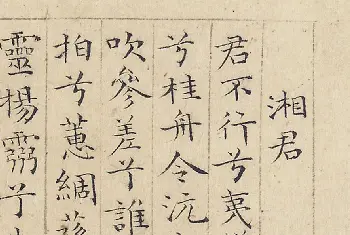 湘君
君不行兮夷
兮桂舟令沅
吹參差兮誰
拍兮蕙綢
靈楊靈兮